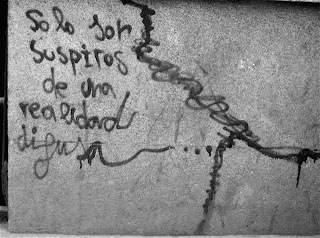 Solo son
suspiros
de una
realidad
difusa ...